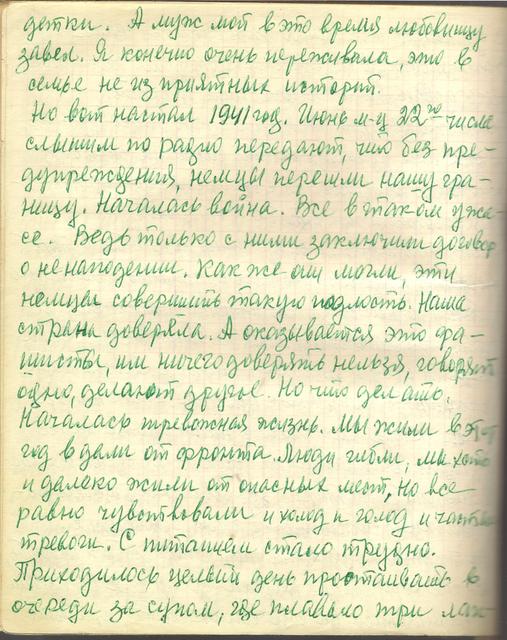 детки. А муж мой в это время любовницу
завел. Я конечно очень переживала, это в
семье не из приятных историй.
Но вот настал 1941 год. Июнь м-ц 22го числа
слышим по радио передают, что без пре-
дупреждения, немцы перешли нашу гра-
ницу. Началась война. Все в таком ужа-
се. Ведь только с ними заключили договор
о ненападении. Как же они могли, эти
немцы совершить такую подлость. Наша
страна доверяла. А оказывается это фа-
шисты, им ничего доверять нельзя, говорят
одно, делают другое. Но что делать.
Началась тревожная жизнь. Мы жили в этот
год в дали от фронта. Люди гибли, мы хоть
и далеко жили от опасных мест, но все
равно чувствовали и холод и голод и частые
тревоги. С питанием стало трудно.
Приходилось целый день простаивать в
очереди за супом, где плавало три лап-